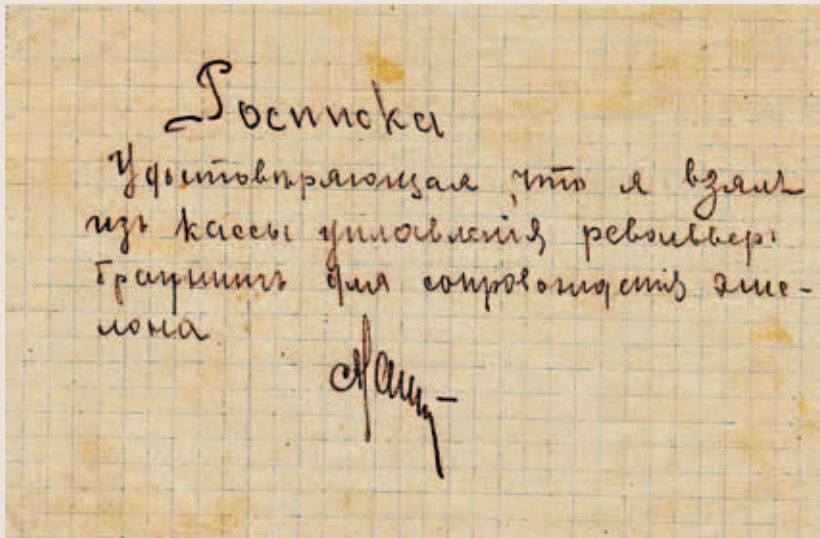 Росписка
Удостовѣряющая что я взялъ
изъ кассы управленія револьверъ
Браунингъ для сопровожденія эше-
лона